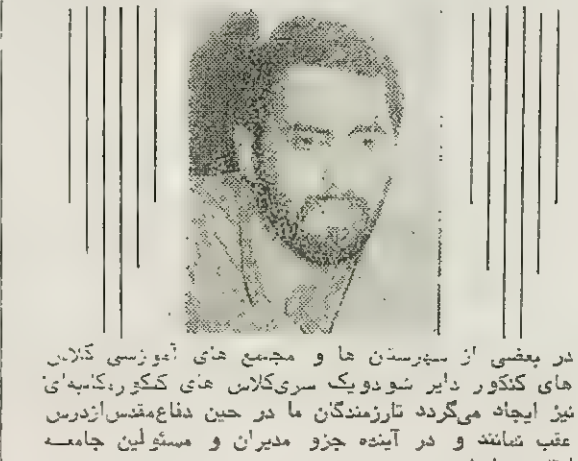 در بعضی از شهرستان ها و مجتمع های آموزشی کلاس
های کنکور دایر شودویک سریکلاس های کنکورمکاتبه‌ای
نیز ایجاد می‌گردد تارزمندگان ما در حین دفاع‌مقدس‌ازدرس
عقب نمانند و در آینده جزو مدیران و مسئولین جامعه